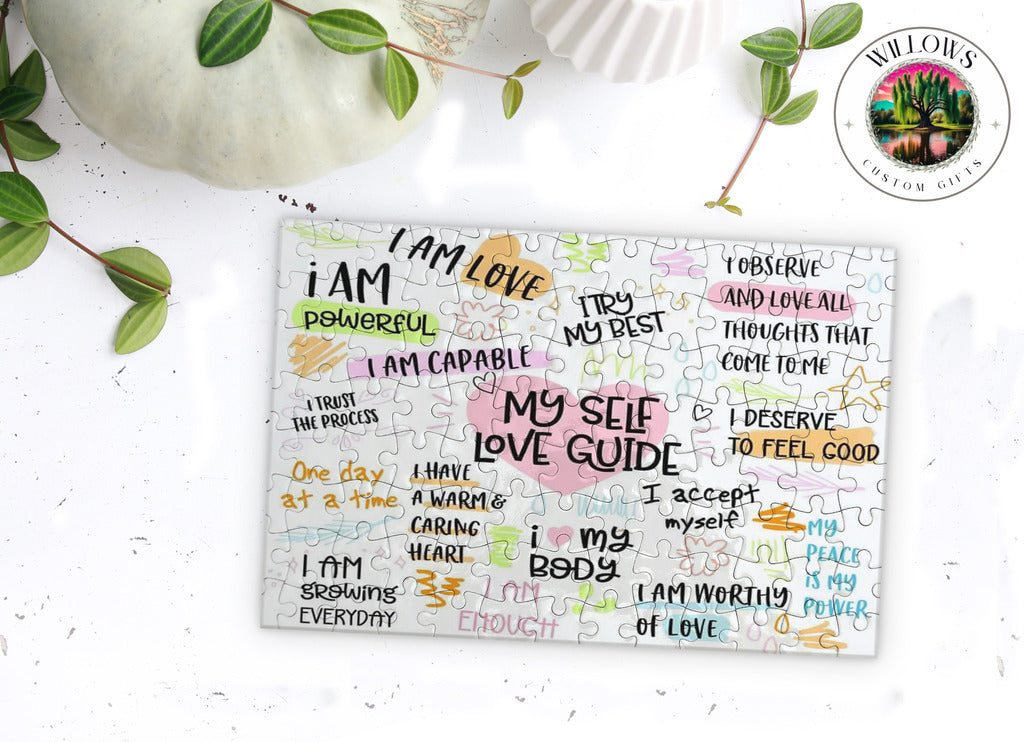 WILLOWS
CUSTOM GIFTS
I AM LOVE
i AM
POWERFUL
I TRY
MY BEST
I OBSERVE
AND LOVE ALL
THOUGHTS THAT
COME TO ME
I AM CAPABLE
I TRUST
THE PROCESS
MY SELF
LOVE GUIDE
I DESERVE
TO FEEL GOOD
One day
at a time
I HAVE
A WARM &
CARING
HEART
I accept
myself
i my
BODY
MY
PEACE
IS MY
POWER
I AM
growing
EVERYDAY
I AM
ENOUGH
I AM WORTHY
OF LOVE